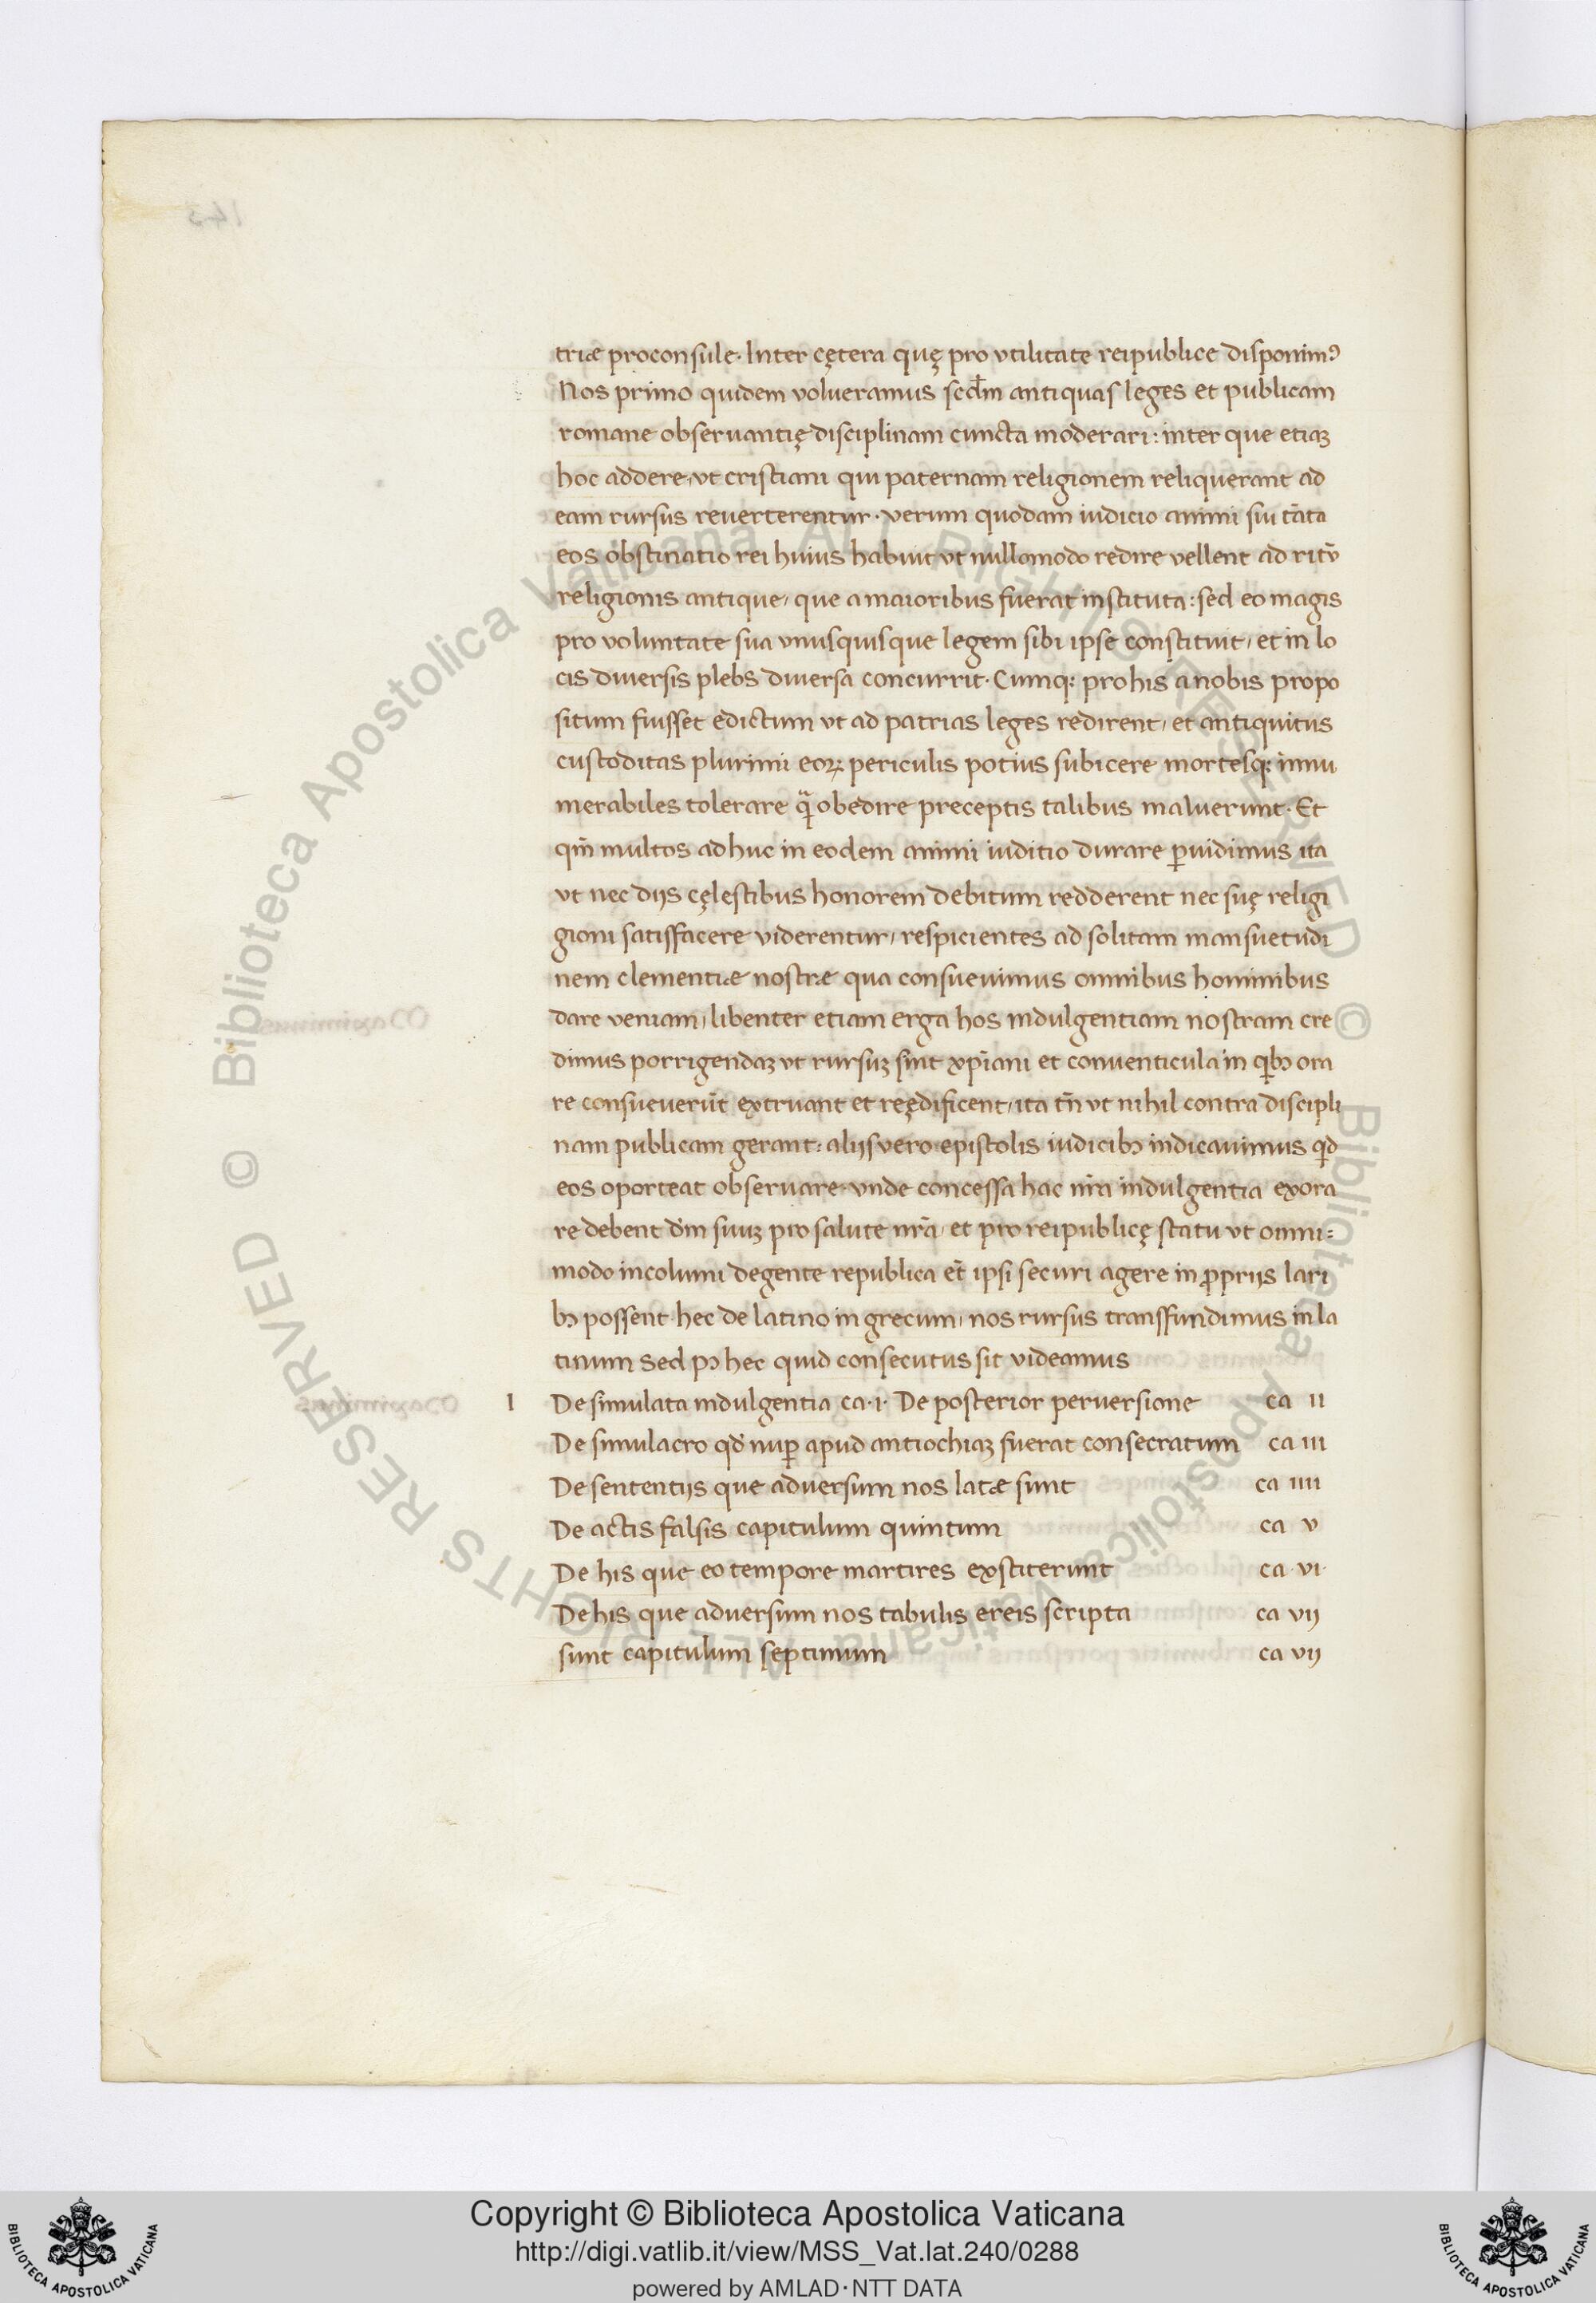 triæ proconsule· Inter cętera quę pro vtilitate reipublice disponimꝰ
Nos primo quidem volueramus scd̄m antiquas leges et publicam
romane obseruantię disciplinam cuncta moderari: inter que etiaꝫ
hoc addere, vt cristiani qui paternam religionem reliquerant ad
eam rursus reuerterentur· verum quodam iudicio animi sui tāta
eos obstinatio rei huius habuit vt nullomodo redire vellent ad ritū
religionis antique, que a maioribus fuerat instituta: sed eo magis
pro voluntate sua vnusquisque legem sibi ipse constituit, et in lo
cis diuersis plebs diuersa concurrit· Cumqꝫ pro his a nobis propo
situm fuisset edictum vt ad patrias leges redirent, et antiquitus
custoditas plurimi eoꝝ periculis potius subicere mortesqꝫ innu
merabiles tolerare q̃ obedire preceptis talibus maluerunt· Et
qm̄ multos adhuc in eodem animi iuditio durare ꝑuidimus ita
vt nec diis cęlestibus honorem debitum redderent nec suę religi
gioni satisfacere viderentur, respicientes ad solitam mansuetudi
nem clementiæ nostræ qua consueuimus omnibus hominibus
dare veniam, libenter etiam erga hos indulgentiam nostram cre
dimus porrigendaꝫ vt rursuꝫ sint xp̄iani et conuenticula in qibꝫ ora
re consueuerūt extruant et reędificent, ita tn̄ vt nihil contra discipli
nam publicam gerant: aliis vero epistolis iudicibꝫ indicauimus qd
eos oporteat obseruare· vnde concessa hac nr̄a indulgentia exora
re debent dm̄ suuꝫ pro salute nr̄a, et pro reipublicę statu vt omni=
modo incolumi degente republica et ipsi securi agere in ꝓpriis lari
bꝫ possent hec de latino in grecum, nos rursus transffundimus in la
tinum Sed pꝰ hec quid consecutus sit videamus
I De simulata indulgentia ca·i· De posterior peruersione ca ii
De simulacro qd̄ nuꝑ apud antiochiaꝫ fuerat consecratum ca iii
De sententiis que aduersum nos latæ sunt ca iiii
De actis falsis capitulum quintum ca v
De his que eo tempore martires exstiterunt ca·vi·
De his que aduersum nos tabulis ereis scripta ca vii
sunt capitulum septimum ca vii
Copyright © Biblioteca Apostolica Vaticana
http://digi.vatlib.it/view/MSS_Vat.lat.240/0288
powered by AMLAD·NTT DATA